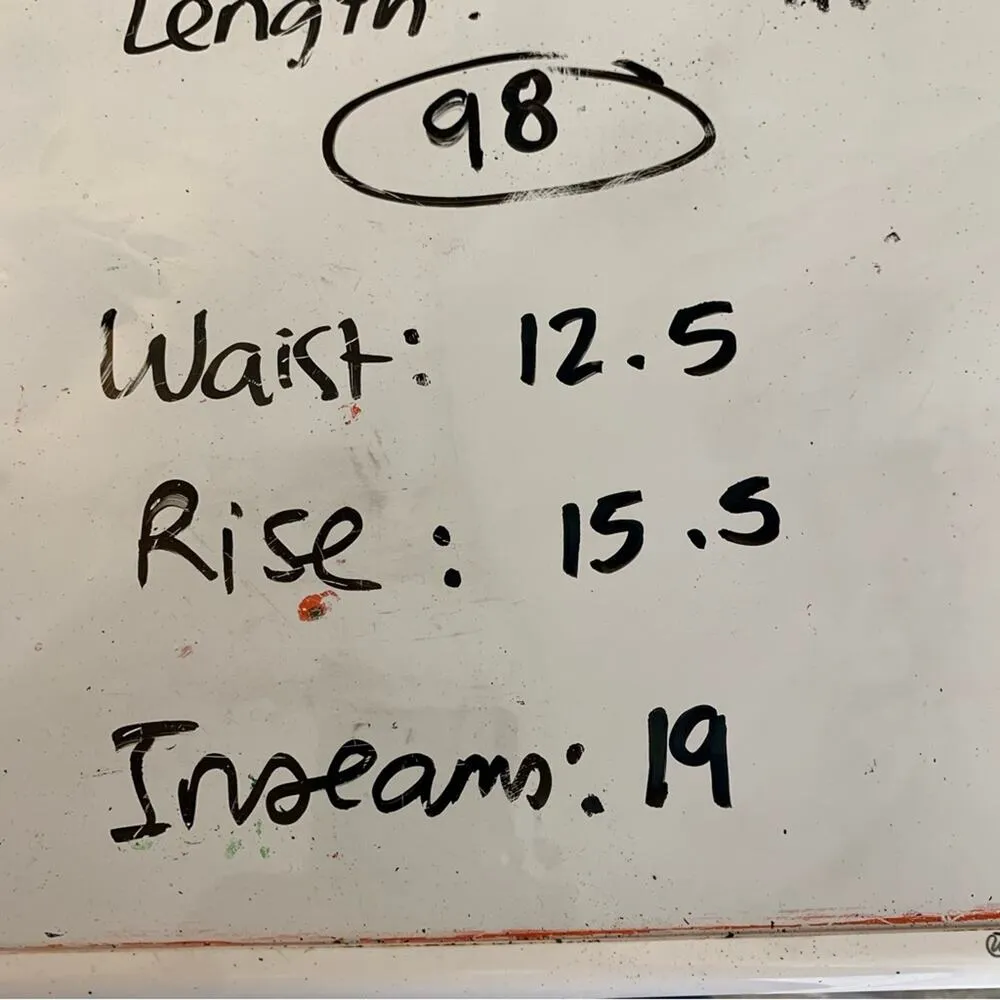 Length :
98
Waist: 12.5
Rise : 15.5
Inseam: 19